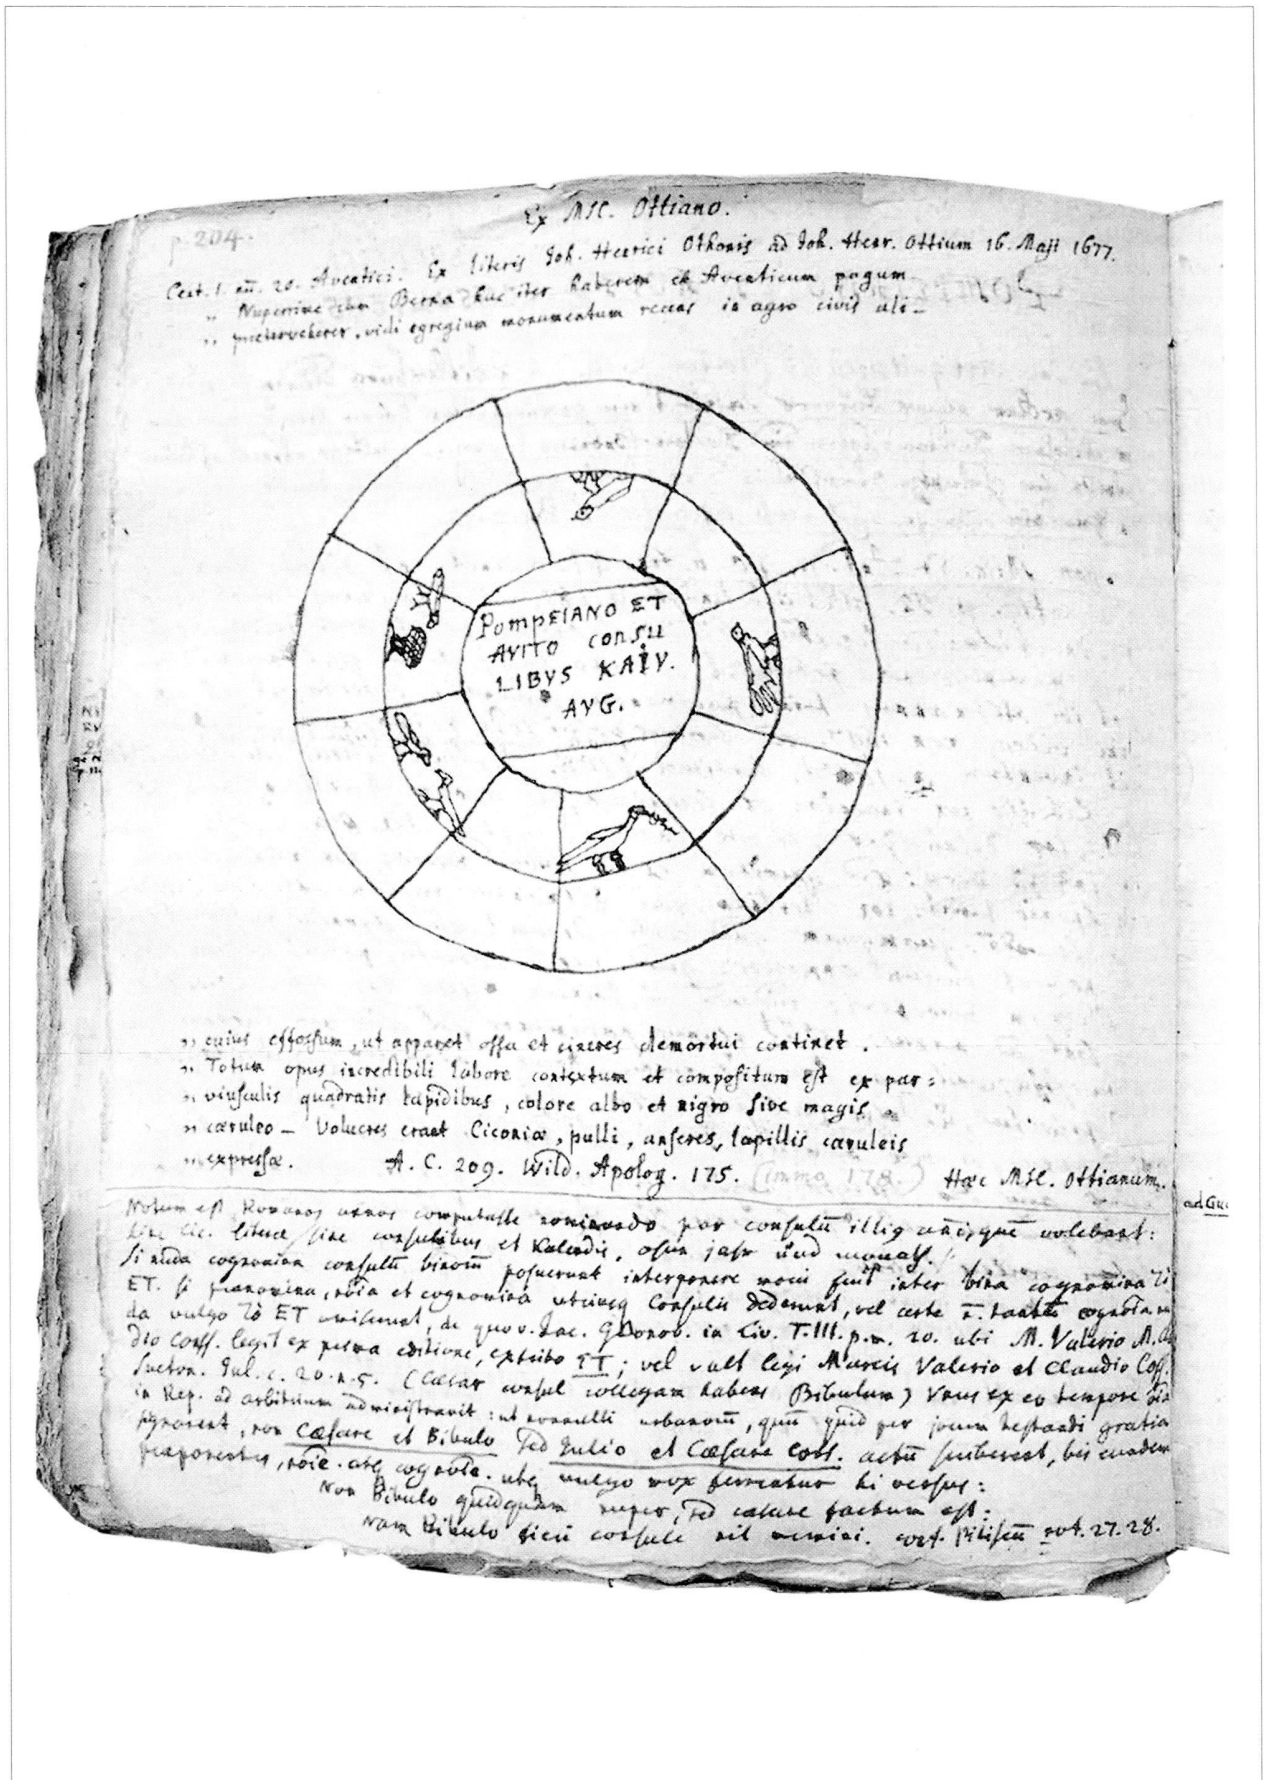 Ex MSC. Ottiano.
p. 204.
Cent. 1. añ. 20. Aventici. Ex literis Joh. Henrici Othonis ad Joh. Henr. Ottium 16. Maji 1677.
„ Nuperrime cum Berna huc iter haberem et Aventicum pagum
„ præterveherer, vidi egregium monumentum recens in agro civis ali-
POMPEIANO ET
AVITO CONSU
LIBVS KAIV.
AVG.
„ cuius effossum, ut apparet ossa et cineres demortui continet.
„ Totum opus incredibili labore contextum et compositum est ex par=
„ viusculis quadratis lapidibus, colore albo et nigro sive magis
„ cæruleo _ Volucres erant Ciconiæ, pulli, anseres, lapillis cæruleis
„ expressæ. A. C. 209. Wild. Apolog. 175. (immo 178.) Hæc MSC. Ottianum.
Notum est Romanos annos computasse nominando par consulũ illiq añi, quẽ volebant:
sine consulibus et Kalendis,
Si nuda cognomina consulũ binorũ posuerunt interponere moris fuit inter bina cognomina τὸ
ET. si prænomina, nõia et cognomina utriusq Consulis dederunt, vel certe
da vulgo τὸ ET omiserunt, de quo v. Jac. Gronov. in Liv. T. III. p. m. 20. ubi M. Valerio M.
dio Coss. legit ex prima editione, extrito ET; vel vult legi Marcis Valerio et Claudio Coss.
Sueton. Jul. c. 20. n. 5. (Cæsar consul collegam habens Bibulum) Unus ex eo tempore
in Rep. ad arbitrium administravit: ut nonnulli urbanorũ, quũ quid per jocum testandi gratia
signarent, non Cæsare et Bibulo sed Julio et Cæsare Coss. actũ scriberent, bis eundem
præponentes, nõie. atq cognõie. utq vulgo mox ferrentur hi versus:
Non Bibulo quidquam nuper, sed cæsare factum est:
Nam Bibulo fieri consule nil memini. conf. Pitiscũ not. 27. 28.